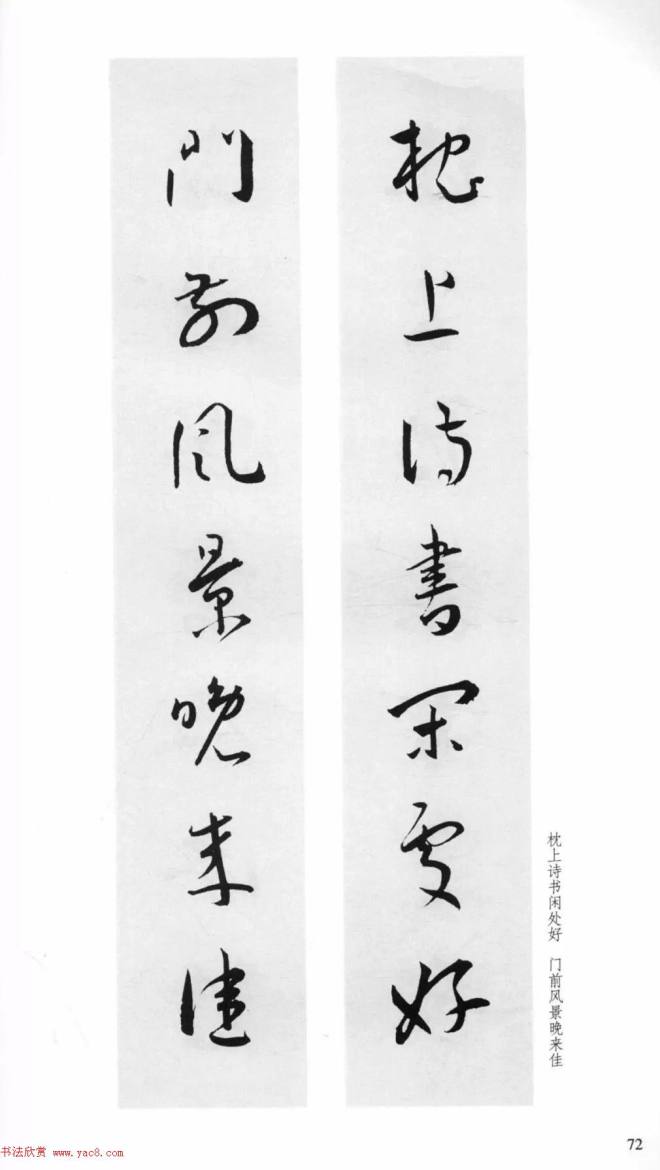 枕上詩書閑處好
門前風景晚來佳
枕上诗书闲处好 门前风景晚来佳
72
书法欣赏 www.yac8.com